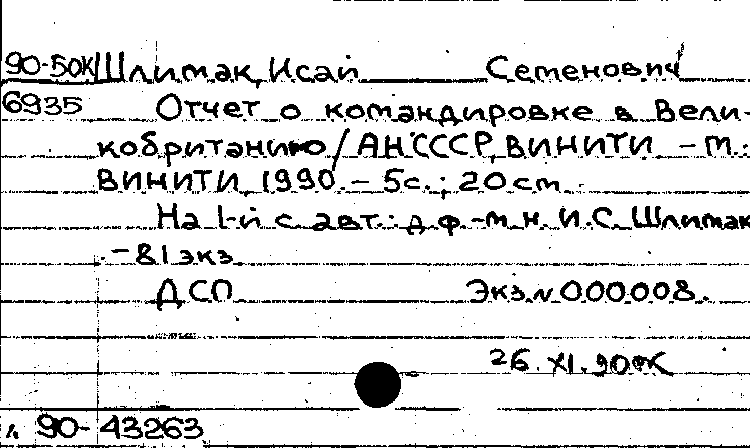 90-5ОК Шлимак, Исай Семенович
6935 Отчет о командировке в Вели-
кобританию / АН СССР, ВИНИТИ. - М.:
ВИНИТИ, 1990. - 5 с.; 20 см.
На 1-й с авт.: д.ф.-м.н. И.С. Шлимак
. - 81 экз.
ДСП Экз.N 000008.
26.XI.90
90-43263